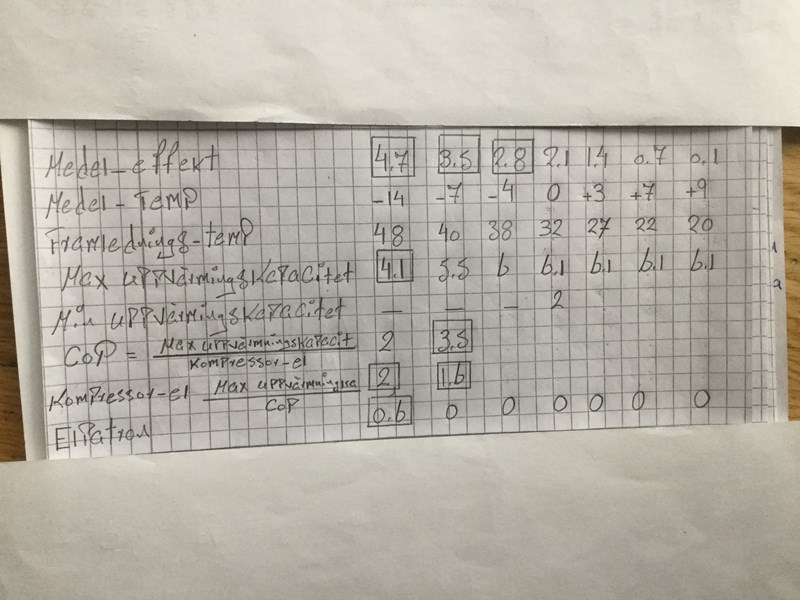 Medel-effekt 4.7 3.5 2.8 2.1 1.4 0.7 0.1
Medel-Temp -14 -7 -4 0 +3 +7 +9
Framlednings-temp 48 40 38 32 27 22 20
Max uppvärmingskapacitet 4.1 5.5 6 6.1 6.1 6.1 6.1
Min uppvärmingskapacitet — — — 2
CoP = Max uppvärmningskapacit / Kompressor-el 2 3.5
Kompressor-el Max uppvärmningska / CoP 2 1.6
Elpatron 0.6 0 0 0 0 0 0